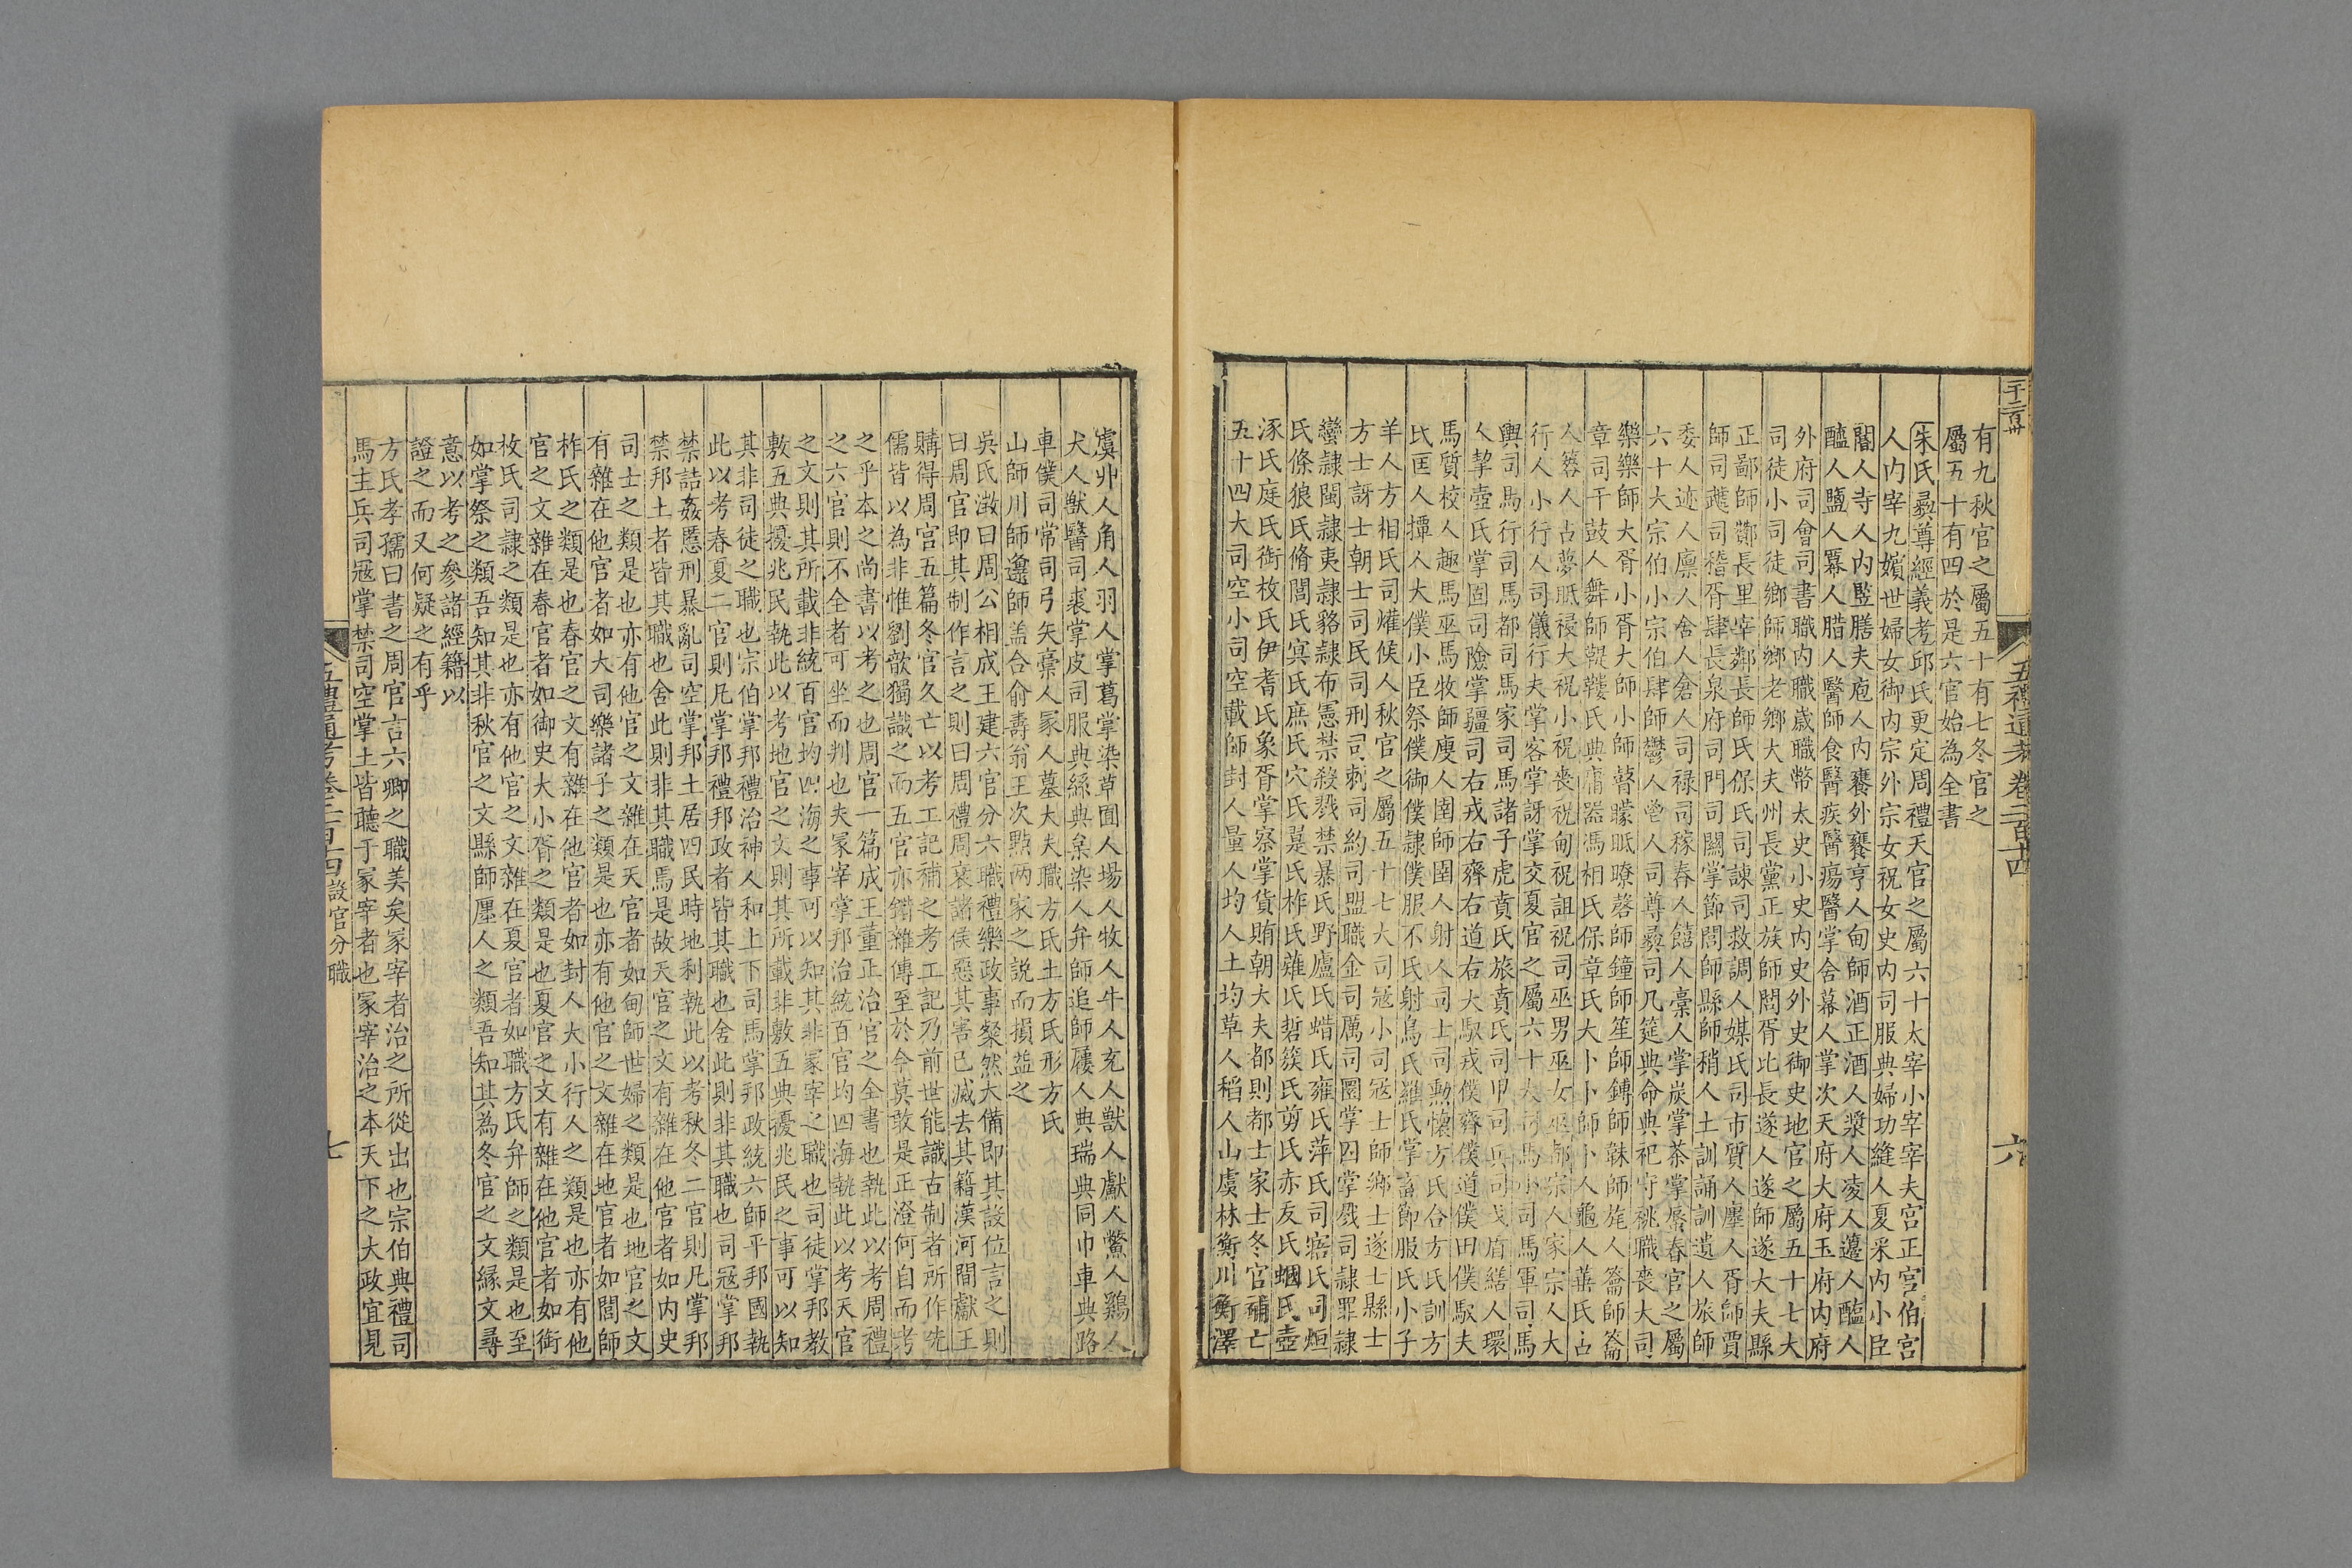 五禮通考卷二百十四
六
有九秋官之屬五十有七冬官之
屬五十有四於是六官始為全書
朱氏彝尊經義考邱氏更定周禮天官之屬六十太宰小宰宰夫宫正宫伯宫
人内宰九嬪世婦女御内宗外宗女祝女史内司服典婦功縫人夏采内小臣
閽人寺人内竪膳夫庖人内饔外饔亨人甸師酒正酒人漿人凌人籩人醢人
醯人鹽人冪人腊人醫師食醫疾醫瘍醫掌舍幕人掌次天府大府玉府内府
外府司會司書職内職歲職幣太史小史内史外史御史地官之屬五十七大
司徒小司徒鄉師鄉老鄉大夫州長黨正族師閭胥比長遂人遂師遂大夫縣
正鄙師酇長里宰鄰長師氏保氏司諫司救調人媒氏司市質人廛人胥師賈
師司虣司稽胥肆長泉府司門司關掌節閭師縣師稍人土訓誦訓遺人旅師
委人迹人廩人舍人倉人司祿司稼舂人饎人槀人掌炭掌荼掌蜃春官之屬
六十大宗伯小宗伯肆師鬱人鬯人司尊彝司几筵典命典祀守祧職喪大司
樂樂師大胥小胥大師小師瞽矇眡瞭磬師鐘師笙師鎛師韎師旄人籥師籥
章司干鼓人舞師鞮鞻氏典庸器馮相氏保章氏大卜卜師卜人龜人菙氏占
人簭人占夢眡祲大祝小祝喪祝甸祝詛祝司巫男巫女巫都宗人家宗人大
行人小行人司儀行夫掌客掌訝掌交夏官之屬六十大司馬小司馬軍司馬
輿司馬行司馬都司馬家司馬諸子虎賁氏旅賁氏司甲司兵司戈盾繕人環
人挈壺氏掌固司險掌疆司右戎右齊右道右大馭戎僕齊僕道僕田僕馭夫
馬質校人趣馬巫馬牧師廋人圉師圉人射人司士司勲懷方氏合方氏訓方
氏匡人撢人大僕小臣祭僕御僕隸僕服不氏射鳥氏羅氏掌畜節服氏小子
羊人方相氏司爟候人秋官之屬五十七大司寇小司寇士師鄉士遂士縣士
方士訝士朝士司民司刑司刺司約司盟職金司厲司圜掌囚掌戮司隸罪隸
蠻隸閩隸夷隸貉隸布憲禁殺戮禁暴氏野廬氏蜡氏雍氏萍氏司寤氏司烜
氏條狼氏脩閭氏冥氏庶氏穴氏翨氏柞氏薙氏硩蔟氏剪氏赤犮氏蟈氏壺
涿氏庭氏銜枚氏伊耆氏象胥掌察掌貨賄朝大夫都則都士家士冬官補亡
五十四大司空小司空載師封人量人均人土均草人稻人山虞林衡川衡澤
虞丱人角人羽人掌葛掌染草囿人場人牧人牛人充人獸人䱷人鱉人鷄人
犬人獸醫司裘掌皮司服典絲典枲染人弁師追師屨人典瑞典同巾車典路
車僕司常司弓矢槀人冢人墓大夫職方氏土方氏形方氏
山師川師邍師盖合俞壽翁王次點兩家之説而損益之
吳氏澂曰周公相成王建六官分六職禮樂政事粲然大備即其設位言之則
曰周官即其制作言之則曰周禮周衰諸侯惡其害已滅去其籍漢河間獻王
購得周官五篇冬官久亡以考工記補之考工記乃前世能識古制者所作先
儒皆以為非惟劉歆獨識之而五官亦錯雜傳至於今莫敢是正澄何自而考
之乎本之尚書以考之也周官一篇成王董正治官之全書也執此以考周禮
之六官則不全者可坐而判也夫冢宰掌邦治統百官均四海執此以考天官
之文則其所載非統百官均四海之事可以知其非冢宰之職也司徒掌邦教
敷五典擾兆民執此以考地官之文則其所載非敷五典擾兆民之事可以知
其非司徒之職也宗伯掌邦禮治神人和上下司馬掌邦政統六師平邦國執
此以考春夏二官則凡掌邦禮邦政者皆其職也舍此則非其職也司寇掌邦
禁詰姦慝刑暴亂司空掌邦土居四民時地利執此以考秋冬二官則凡掌邦
禁邦土者皆其職也舍此則非其職焉是故天官之文有雜在他官者如内史
司士之類是也亦有他官之文雜在天官者如甸師世婦之類是也地官之文
有雜在他官者如大司樂諸子之類是也亦有他官之文雜在地官者如閭師
柞氏之類是也春官之文有雜在他官者如封人大小行人之類是也亦有他
官之文雜在春官者如御史大小胥之類是也夏官之文有雜在他官者如銜
枚氏司隸之類是也亦有他官之文雜在夏官者如職方氏弁師之類是也至
如掌祭之類吾知其非秋官之文縣師廛人之類吾知其為冬官之文緣文尋
意以考之參諸經籍以
證之而又何疑之有乎
方氏孝孺曰書之周官言六卿之職美矣冢宰者治之所從出也宗伯典禮司
馬主兵司寇掌禁司空掌土皆聽于冢宰者也冢宰治之本天下之大政宜見
五禮通考卷二百十四 設官分職
七